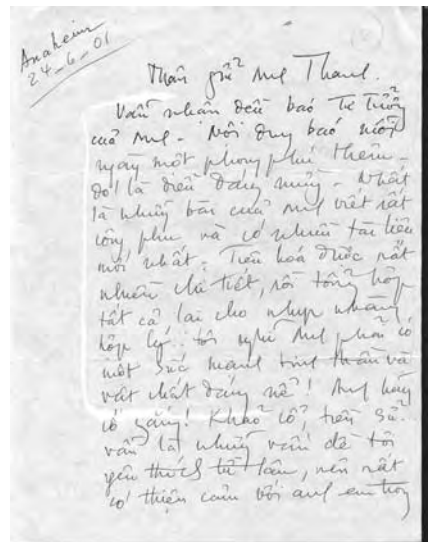 Anaheim
24-6-01
Thân gửi anh Thanh.
Vẫn nhận đều báo Tư Tưởng
của anh - Nội dung báo mỗi
ngày một phong phú thêm -
đó là điều đáng mừng - Nhất
là những bài của anh viết rất
công phu và có nhiều tài liệu
mới nhất. Tiền hoá được rất
nhiều chi tiết, rồi tổng hợp
tất cả lại cho nhịp nhàng
hợp lý. Tôi nghĩ anh phải có
một sức mạnh tinh thần và
vật chất đáng nể! Anh hãy
cố gắng! Khảo cổ, tiền sử
vẫn là những vấn đề tôi
yêu thích từ lâu, nên rất
có thiện cảm với anh em trong